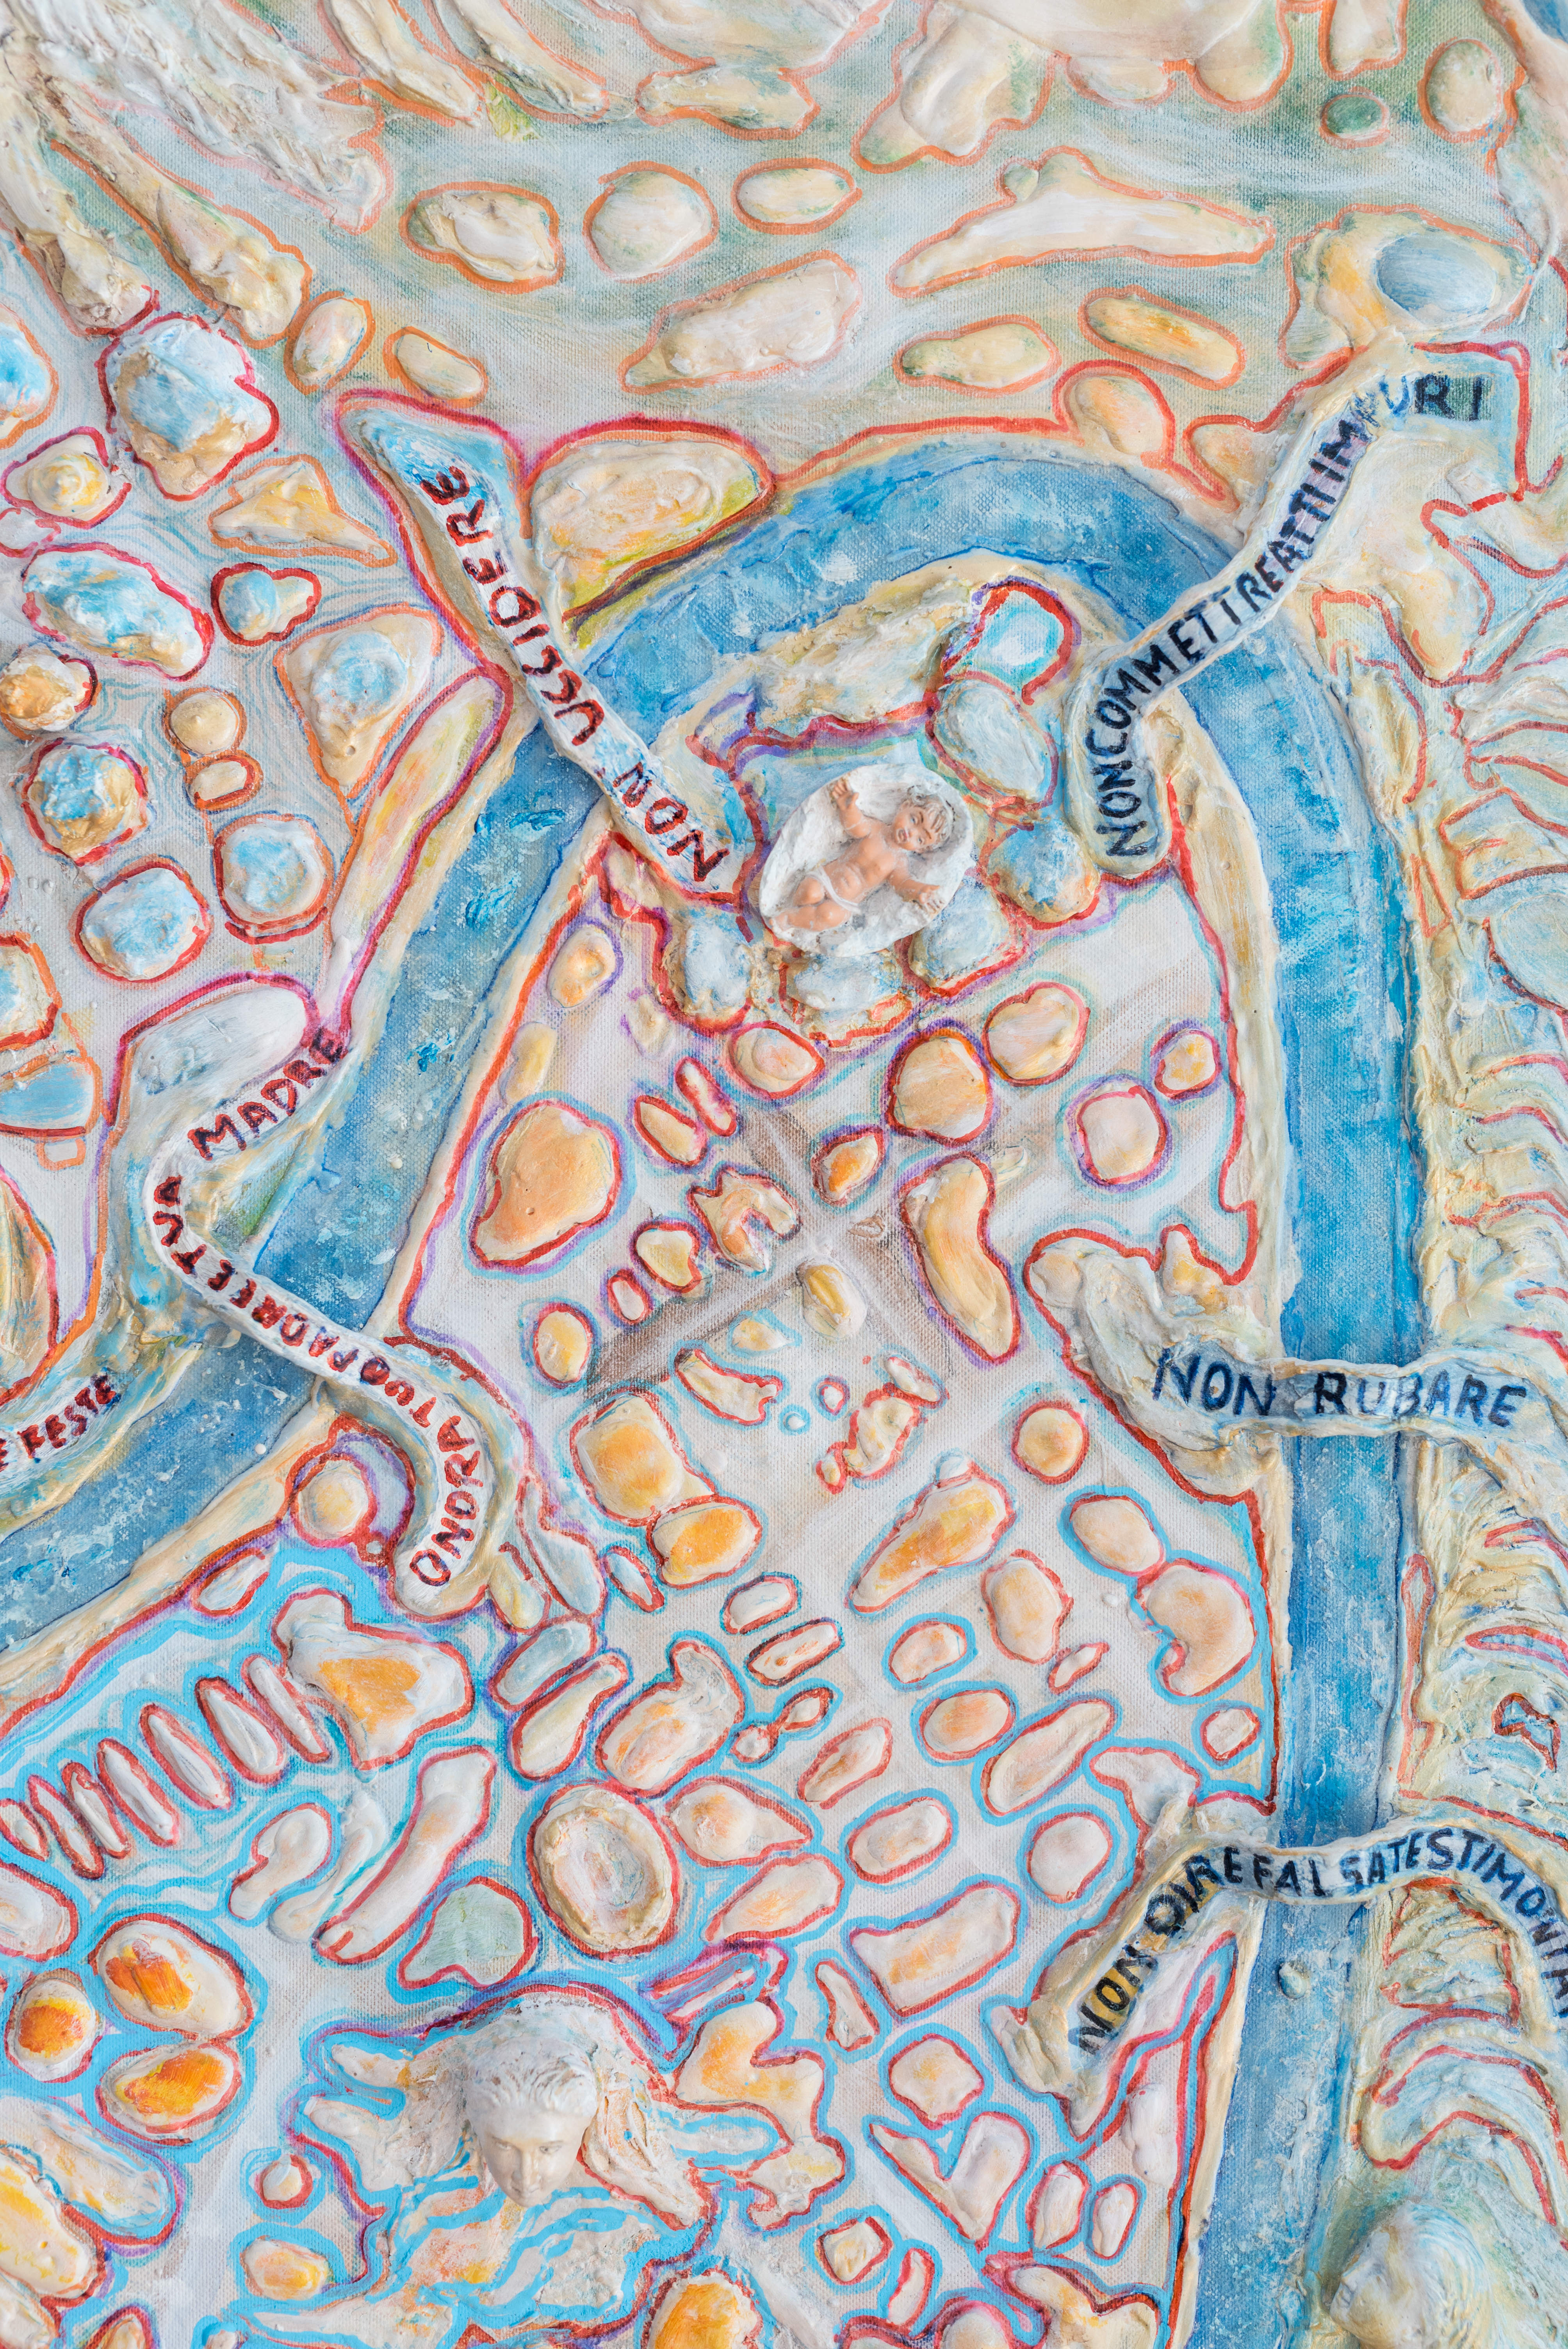 NON UCCIDERE
NONCOMMETTREATTIIMPURI
ONORATUOPADREETUA MADRE
E FESTE
NON RUBARE
NON DIREFALSATESTIMONI